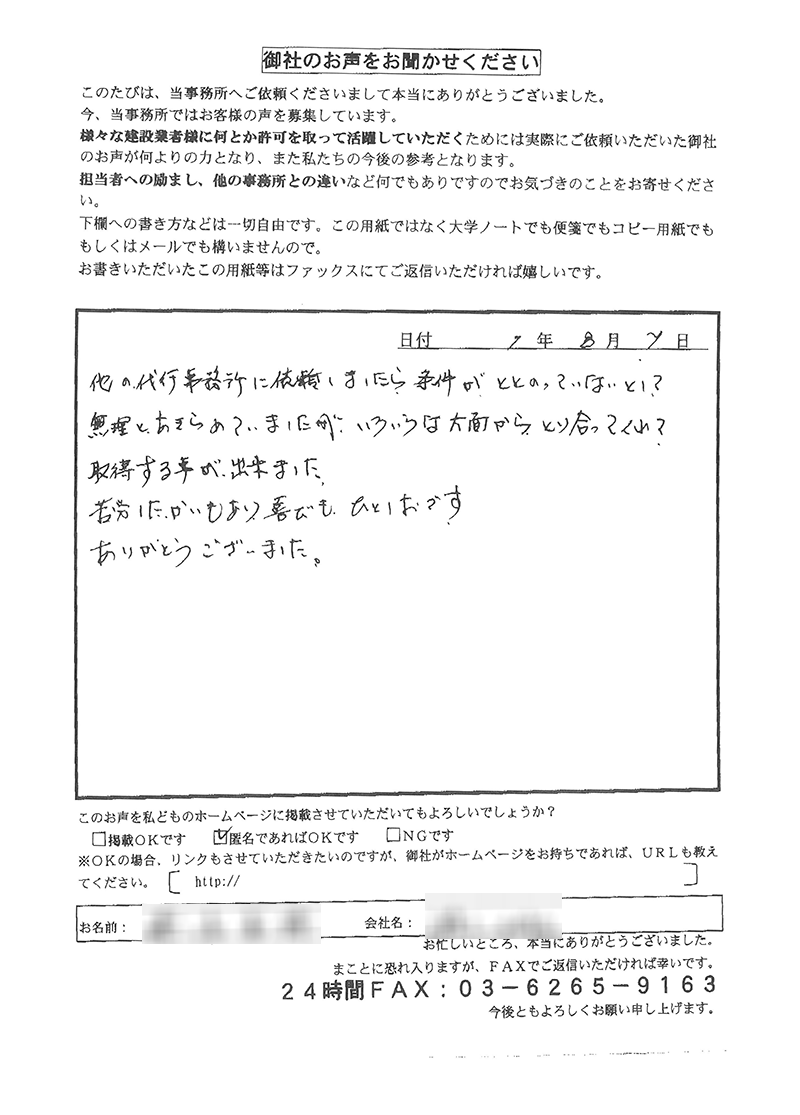 御社のお声をお聞かせください
このたびは、当事務所へご依頼くださいまして本当にありがとうございました。
今、当事務所ではお客様の声を募集しています。
様々な建設業者様に何とか許可を取って活躍していただくためには実際にご依頼いただいた御社
のお声が何よりの力となり、また私たちの今後の参考となります。
担当者への励まし、他の事務所との違いなど何でもありですのでお気づきのことをお寄せくださ
い。
下欄への書き方などは一切自由です。この用紙ではなく大学ノートでも便箋でもコピー用紙でも
もしくはメールでも構いませんので。
お書きいただいたこの用紙等はファックスにてご返信いただければ嬉しいです。
日付 年 8月 7日
他の代行事務所に依頼しましたら条件がととのっていないと
無理とあきらめていましたが いろいろな方面から とり合ってくれ
取得する事が出来ました
苦労したかいもあり喜びも ひとしおです
ありがとうございました。
このお声を私どものホームページに掲載させていただいてもよろしいでしょうか？
□掲載ＯＫです ☑匿名であればＯＫです □ＮＧです
※ＯＫの場合、リンクもさせていただきたいのですが、御社がホームページをお持ちであれば、ＵＲＬも教え
てください。［ http:// ］
お名前： 会社名：
お忙しいところ、本当にありがとうございました。
まことに恐れ入りますが、ＦＡＸでご返信いただければ幸いです。
２４時間ＦＡＸ：０３－６２６５－９１６３
今後ともよろしくお願い申し上げます。